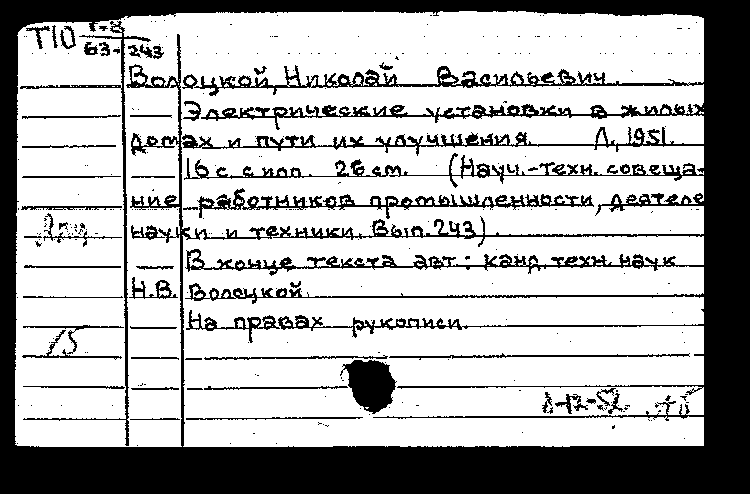 Т10 Г-8
63-243
Волоцкой, Николай Васильевич.
Электрические установки в жилых
домах и пути их улучшения. Л., 1951.
16 с. с илл. 26 см. (Науч.-техн. совеща-
ние работников промышленности, деятеле
науки и техники. Вып. 243).
В конце текста авт.: канд. техн. наук
Н.В. Волоцкой.
На правах рукописи.
15
8-12-52